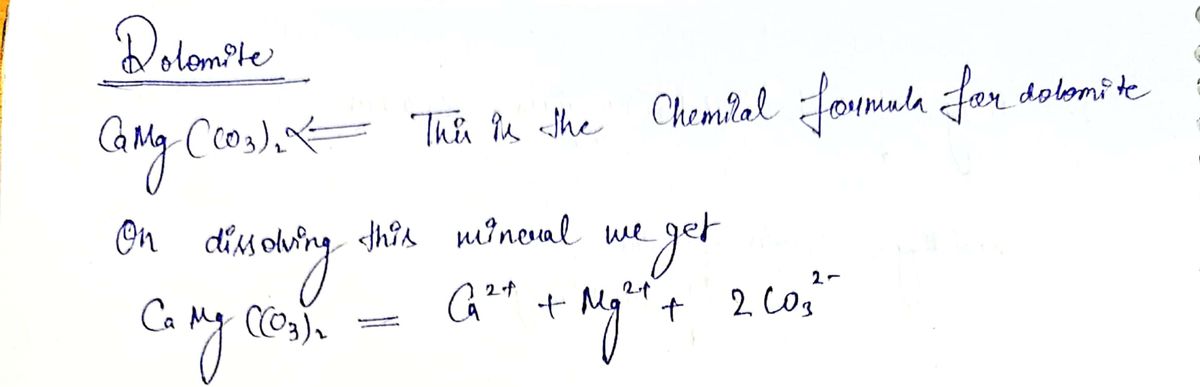 Dolomite
CaMg(CO₃)₂ ⇐ This is the Chemical formula for dolomite
On dissolving this mineral we get
CaMg(CO₃)₂ = Ca²⁺ + Mg²⁺ + 2CO₃²⁻